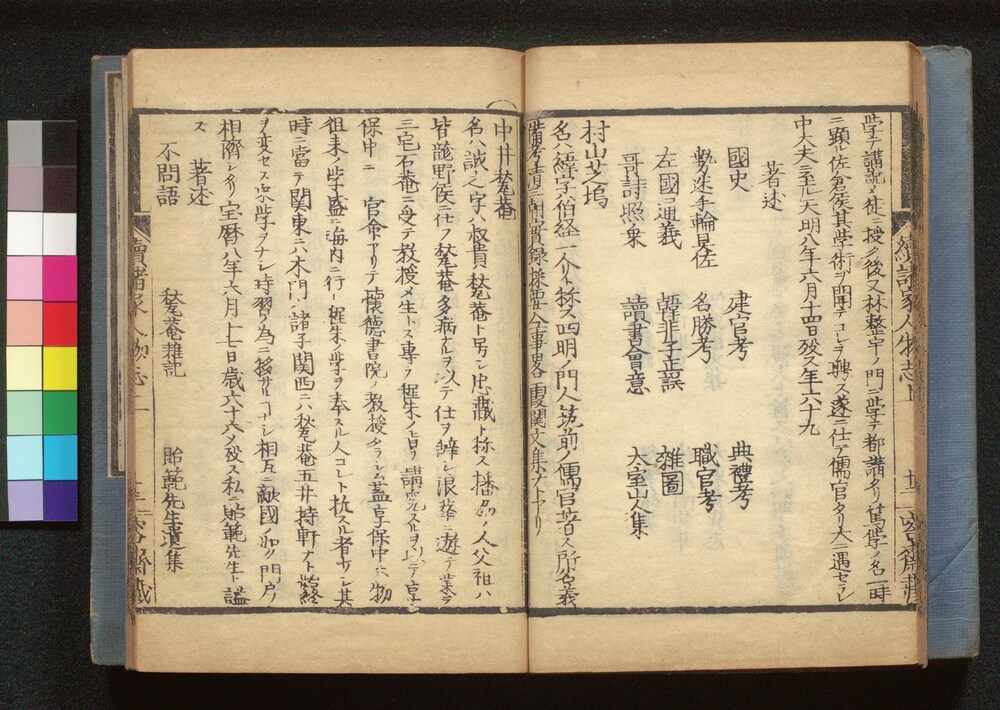 學テ講説〆徒ニ授ク後又林整宇ノ門ニ學テ都講タリ篤學ノ名一時
ニ顕ル佐倉侯其學術ヲ聞テコレヲ聘ス遂ニ仕テ儒官タリ大ニ遇セラレ
中大夫ニ至ル天明八年六月十四日歿ス年六十九
著述
國史 建官考 典禮考
勢遊手輪晁佐 名勝考 職官考
左國通義 韓非子正誤 雜圖
哥詩照乗 讀書會意 大室山人集
村山芝塢
名ハ緯字伯経一介ト称ス四明ノ門人筑前ノ儒官著ス所名義
備考清三朝實録採要仝事畧霞関文集ナトアリ
中井甃菴
名ハ誠之字ハ叔貴甃菴ト号シ忠藏ト称ス播州ノ人父祖ハ
皆龍野侯ニ仕フ甃菴多病ナルヲ以テ仕ヲ辞シ浪華ニ遊テ業ヲ
三宅石菴ニ受テ教授〆生トス専ラ程朱ノ旨ヲ講究スルヲ以テ享
保中ニ 官命アリテ懐德書院ノ教授タラシム蓋享保中ハ物
徂徠ノ学盛ニ海内ニ行レ程朱ノ学ヲ奉スル人コレト抗スル者少シ其
時ニ當テ関東ニハ木門ノ諸子関西ニハ甃菴五井持軒ナト始終
ヲ変セス宋学ヲナシ時習ノ為ニ移サルヿナシ相互ニ敵國ノ如ク門戸ノ
相隋シタリ宝暦八年六月十七日歳六十六〆殁ス私ニ貽範先生ト諡
ス
著述
不問語 甃菴雜記 貽範先生遺集
續諸家人物志上 十二
續諸家人物志上 十三